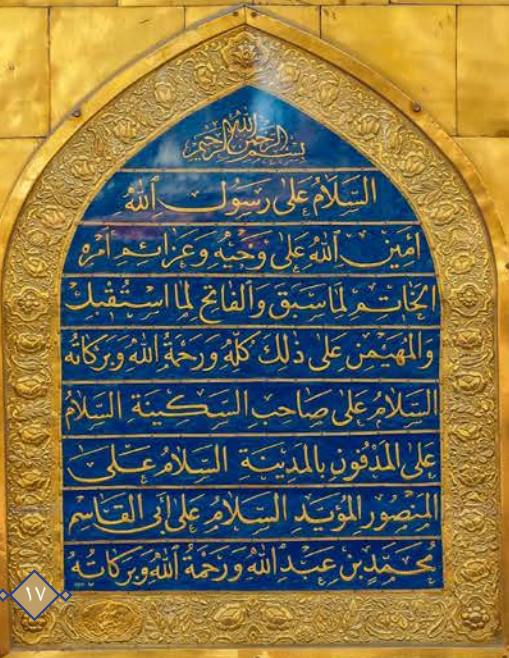 بسم الله الرحمن الرحيم
السَّلَامُ عَلَى رَسُولِ اللهِ
اَمِينِ اللهِ عَلَى وَحْيِهِ وَعَزَائِمِ اَمْرِهِ
الْخَاتِمِ لِمَا سَبَقَ وَالْفَاتِحِ لِمَا اسْتُقْبِلَ
وَالْمُهَيْمِنِ عَلَى ذَلِكَ كُلِّهِ وَرَحْمَةُ اللهِ وَبَرَكَاتُهُ
السَّلَامُ عَلَى صَاحِبِ السَّكِينَةِ السَّلَامُ
عَلَى الْمَدْفُونِ بِالْمَدِينَةِ السَّلَامُ عَلَى
الْمَنْصُورِ الْمُؤَيَّدِ السَّلَامُ عَلَى أَبِي الْقَاسِمِ
مُحَمَّدِ بْنِ عَبْدِ اللهِ وَرَحْمَةُ اللهِ وَبَرَكَاتُهُ
١٧